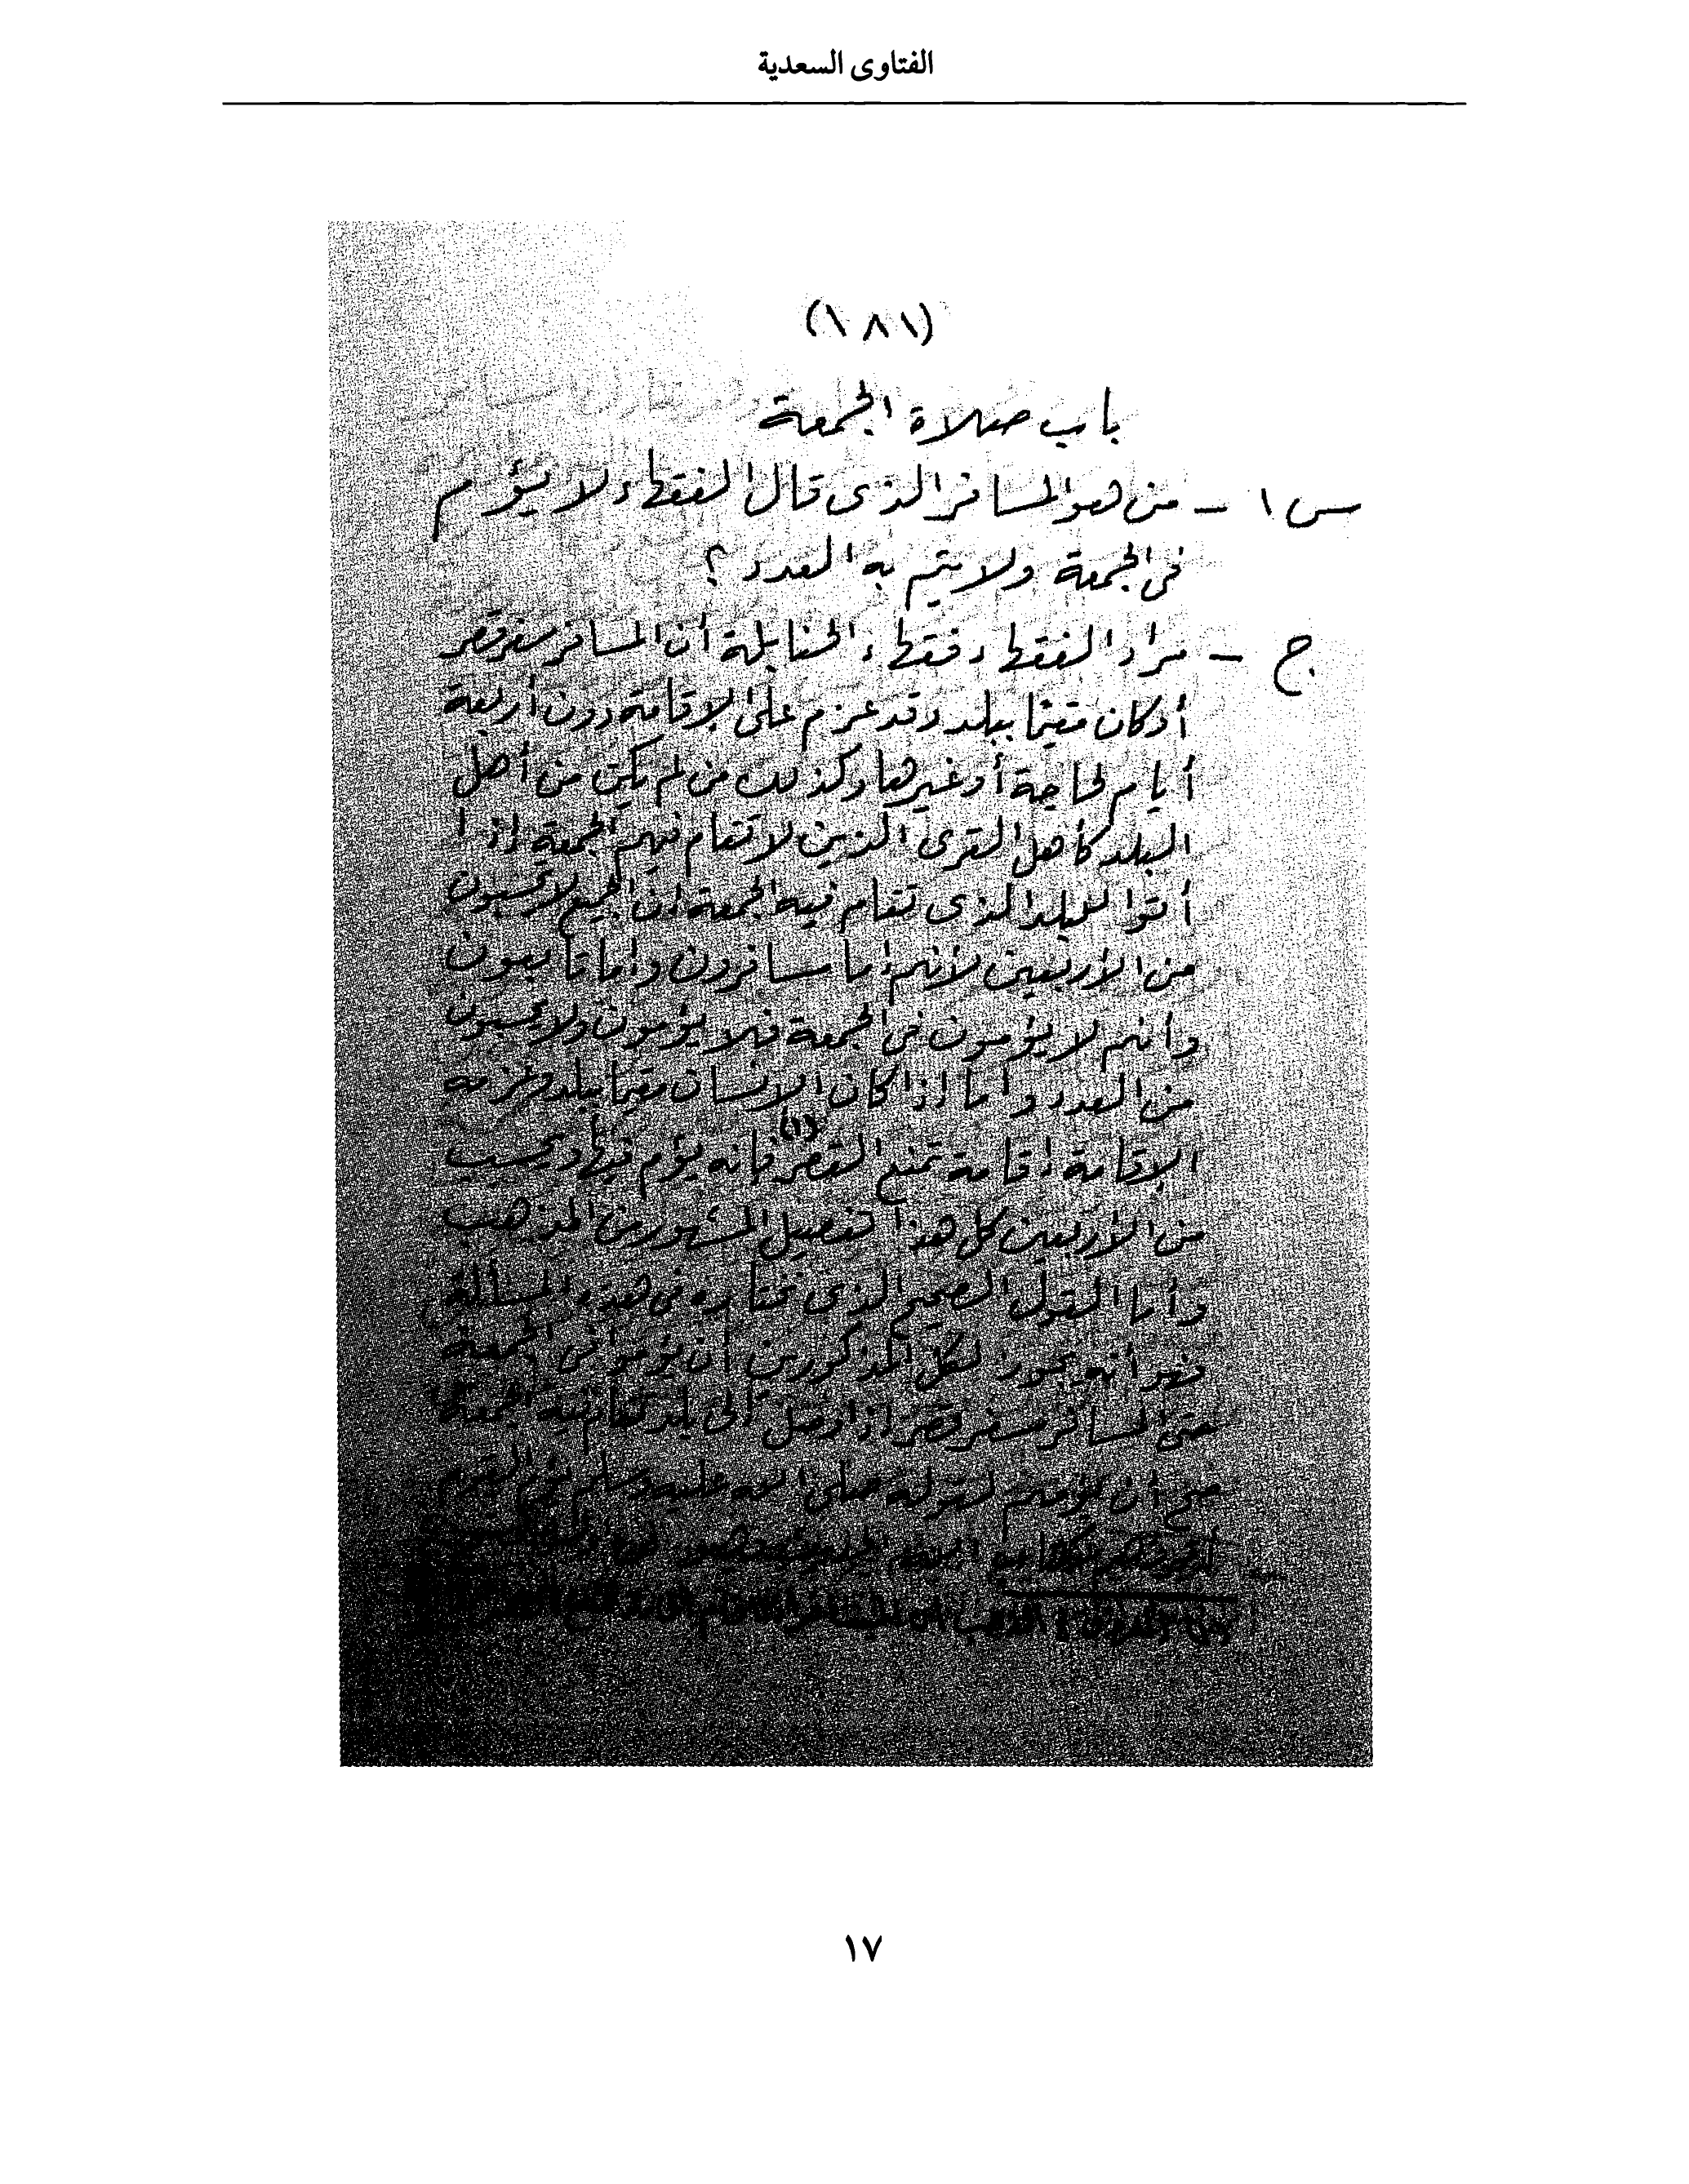 الفتاوى السعدية
(١٨١)
باب صلاة الجمعة
س١ - من هو المسافر الذى قال الفقهاء لا يؤم
فى الجمعة ولا يتم به العدد؟
ج - مراد الفقهاء فقهاء الحنابلة أن المسافر سفر قصر
أو كان مقيما ببلد وقد عزم على الإقامة دون أربعة
أيام لحاجة أو غيرها وكذلك من لم يكن من أهل
البلد كأهل القرى الذين لا تقام فيهم الجمعة إذا
أتوا للبلد الذى تقام فيه الجمعة إن الجميع لا يحسبون
من الأربعين لأنهم إما مسافرون وإما تابعون
وأنهم لا يؤمون فى الجمعة فلا يؤمون ولا يحسبون
من العدد وأما إذا كان الإنسان مقيما ببلد وعزمه
الإقامة إقامة تمنع القصر (١) فإنه يؤم فيها ويحسب
من الأربعين كل هذا تفصيل المشهور من المذهب
وأما القول الصحيح الذى نختاره فى هذه المسألة
فهو أنه يجوز لكل المذكورين أن يؤموا فى الجمعة
حتى المسافر سفر قصر إذا وصل إلى بلد تقام فيه الجمعة
صح أن يؤمهم لقوله صلى الله عليه وسلم يؤم القوم
أقرؤهم لكتاب الله
١٧